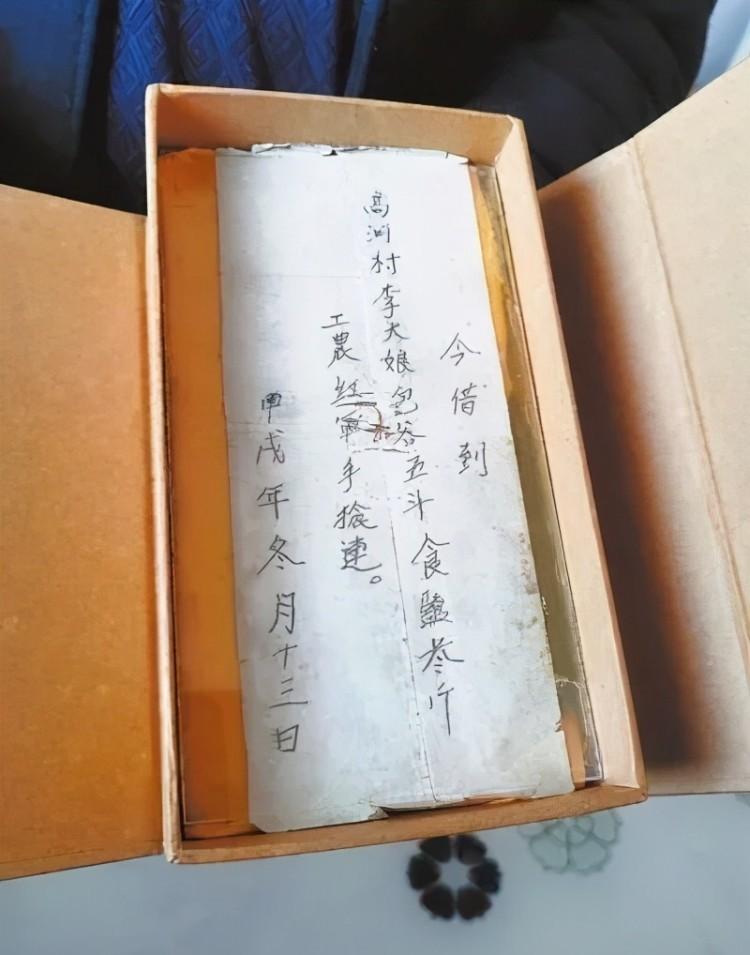 今借到
高洞村李大娘包谷五斗食鹽叁斤
工農紅軍手搶連。
甲戌年冬月十三日